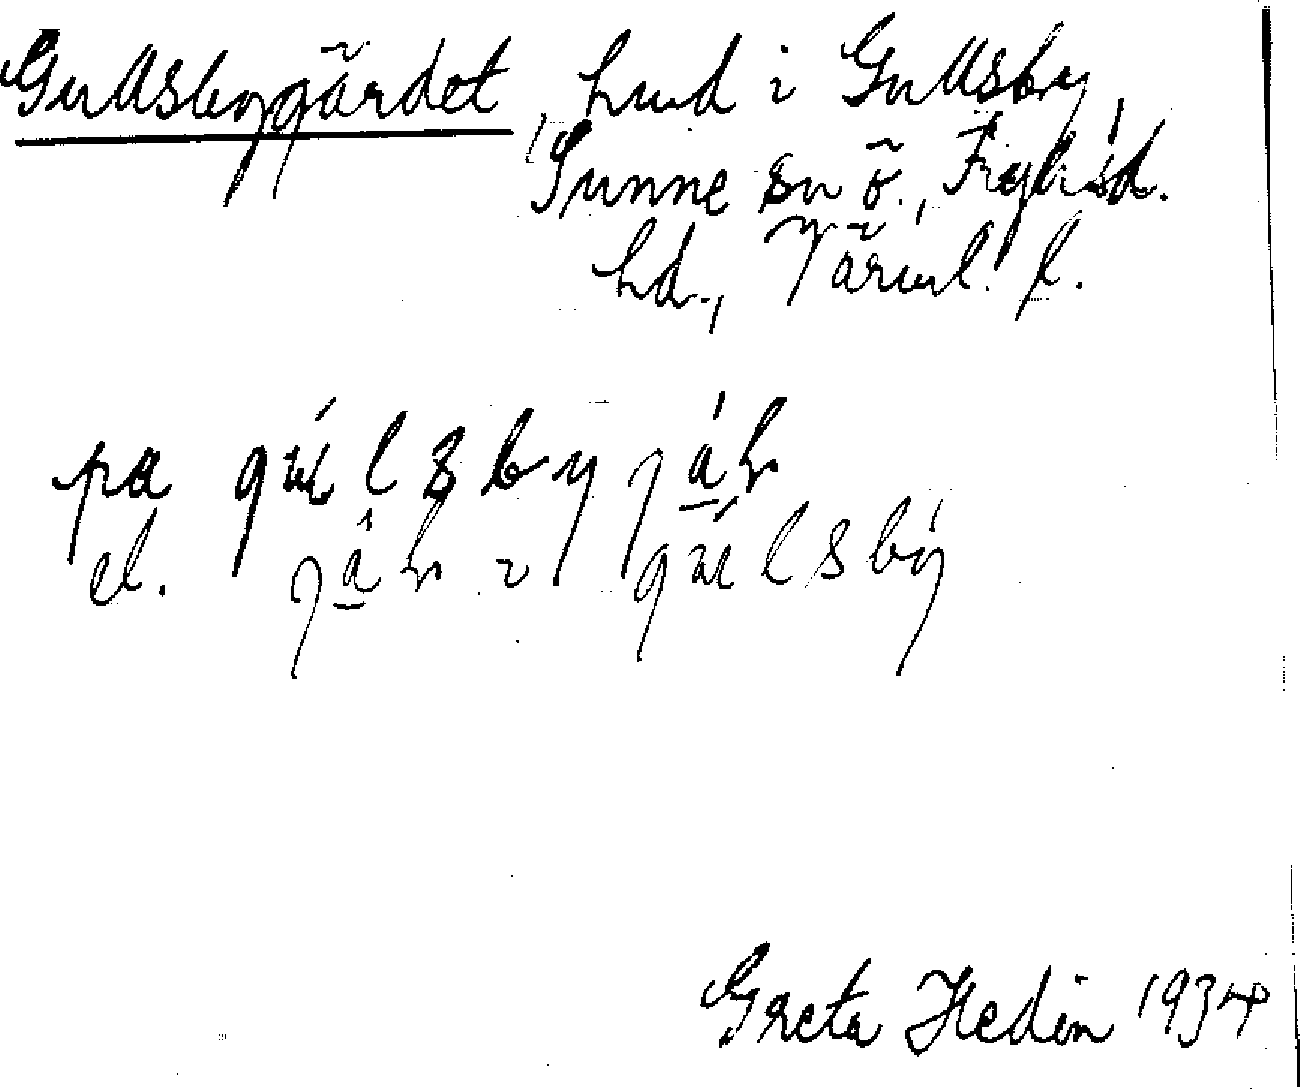 Gullsbygärdet, hmd i Gullsby,
Sunne sn ö., Fryksd.
hd., Värml. l.
pa gu̇́lsbyjáḷn
el. jâḷn i gúlsbý
Greta Hedin 1934